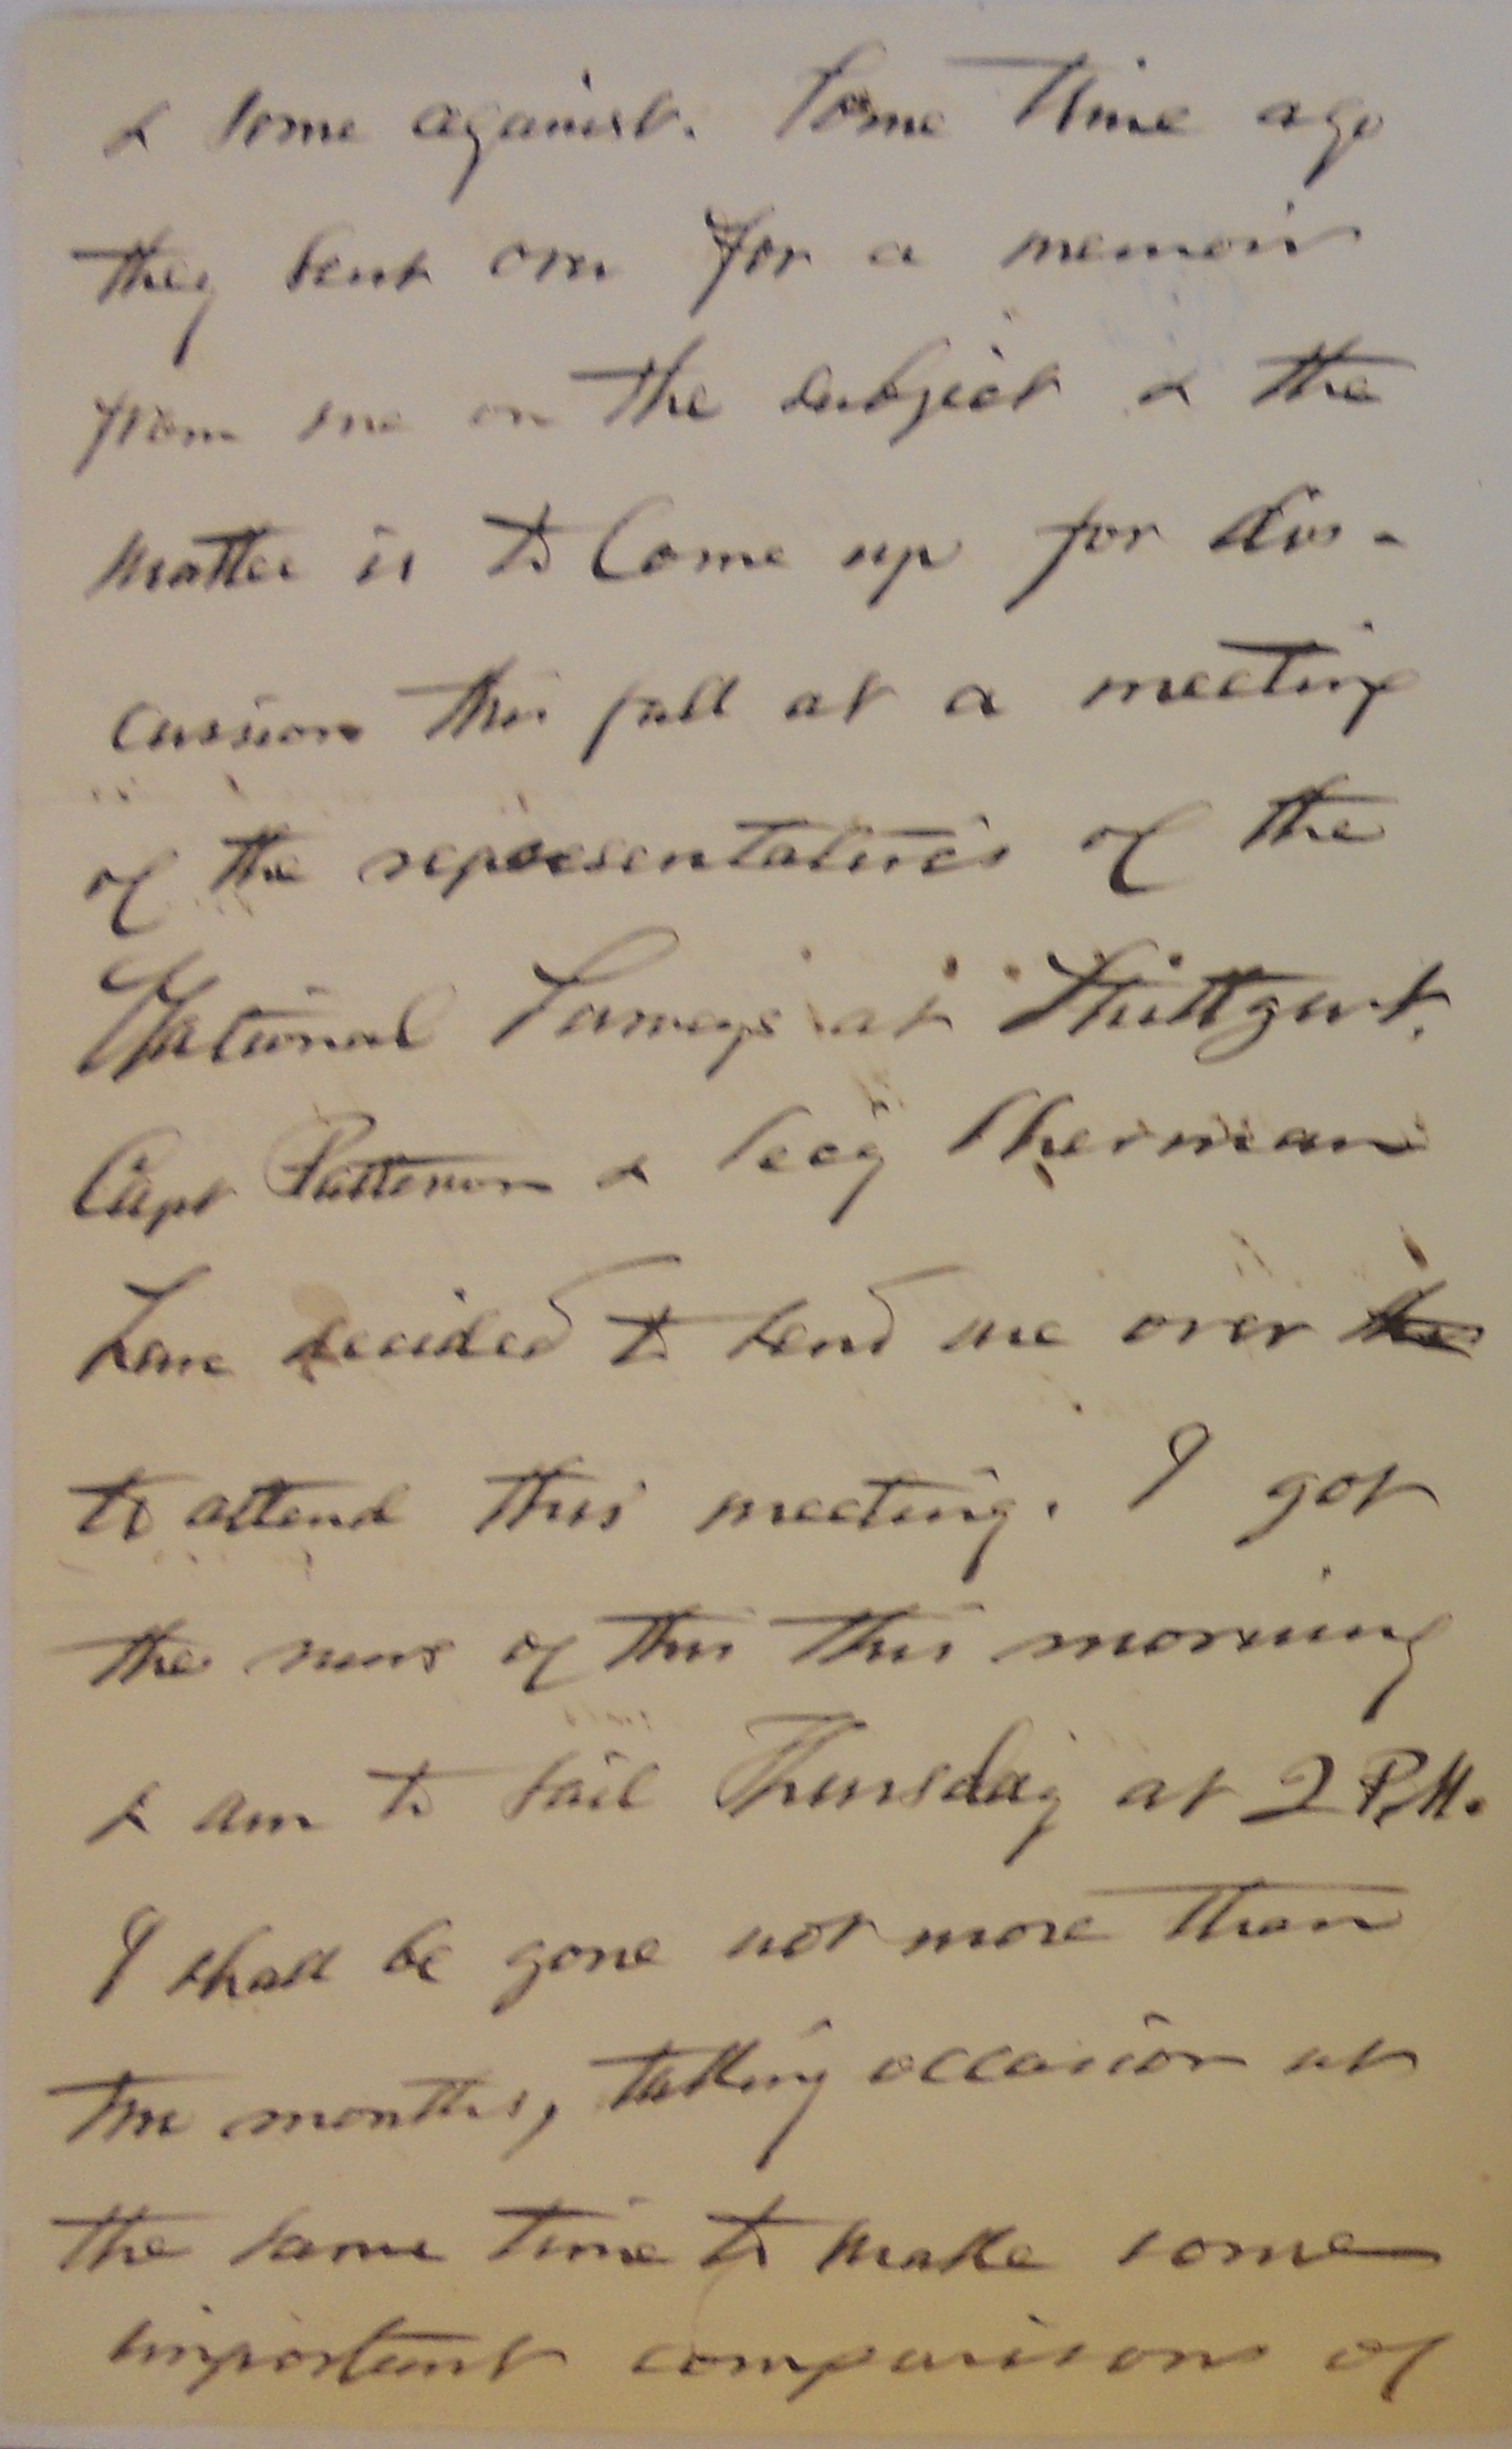 & some against. Some time ago
they sent over for a memoir
from me on the subject & the
matter is to come up for dis-
cussion this fall at a meeting
of the representatives of the
National Surveys at Stuttgart.
Capt Patterson & Secy Sherman
have decided to send me over
to attend this meeting. I got
the news of this this morning
& am to sail Thursday at 2 P.M.
I shall be gone not more than
two months, taking occasion at
the same time to make some
important comparisons of